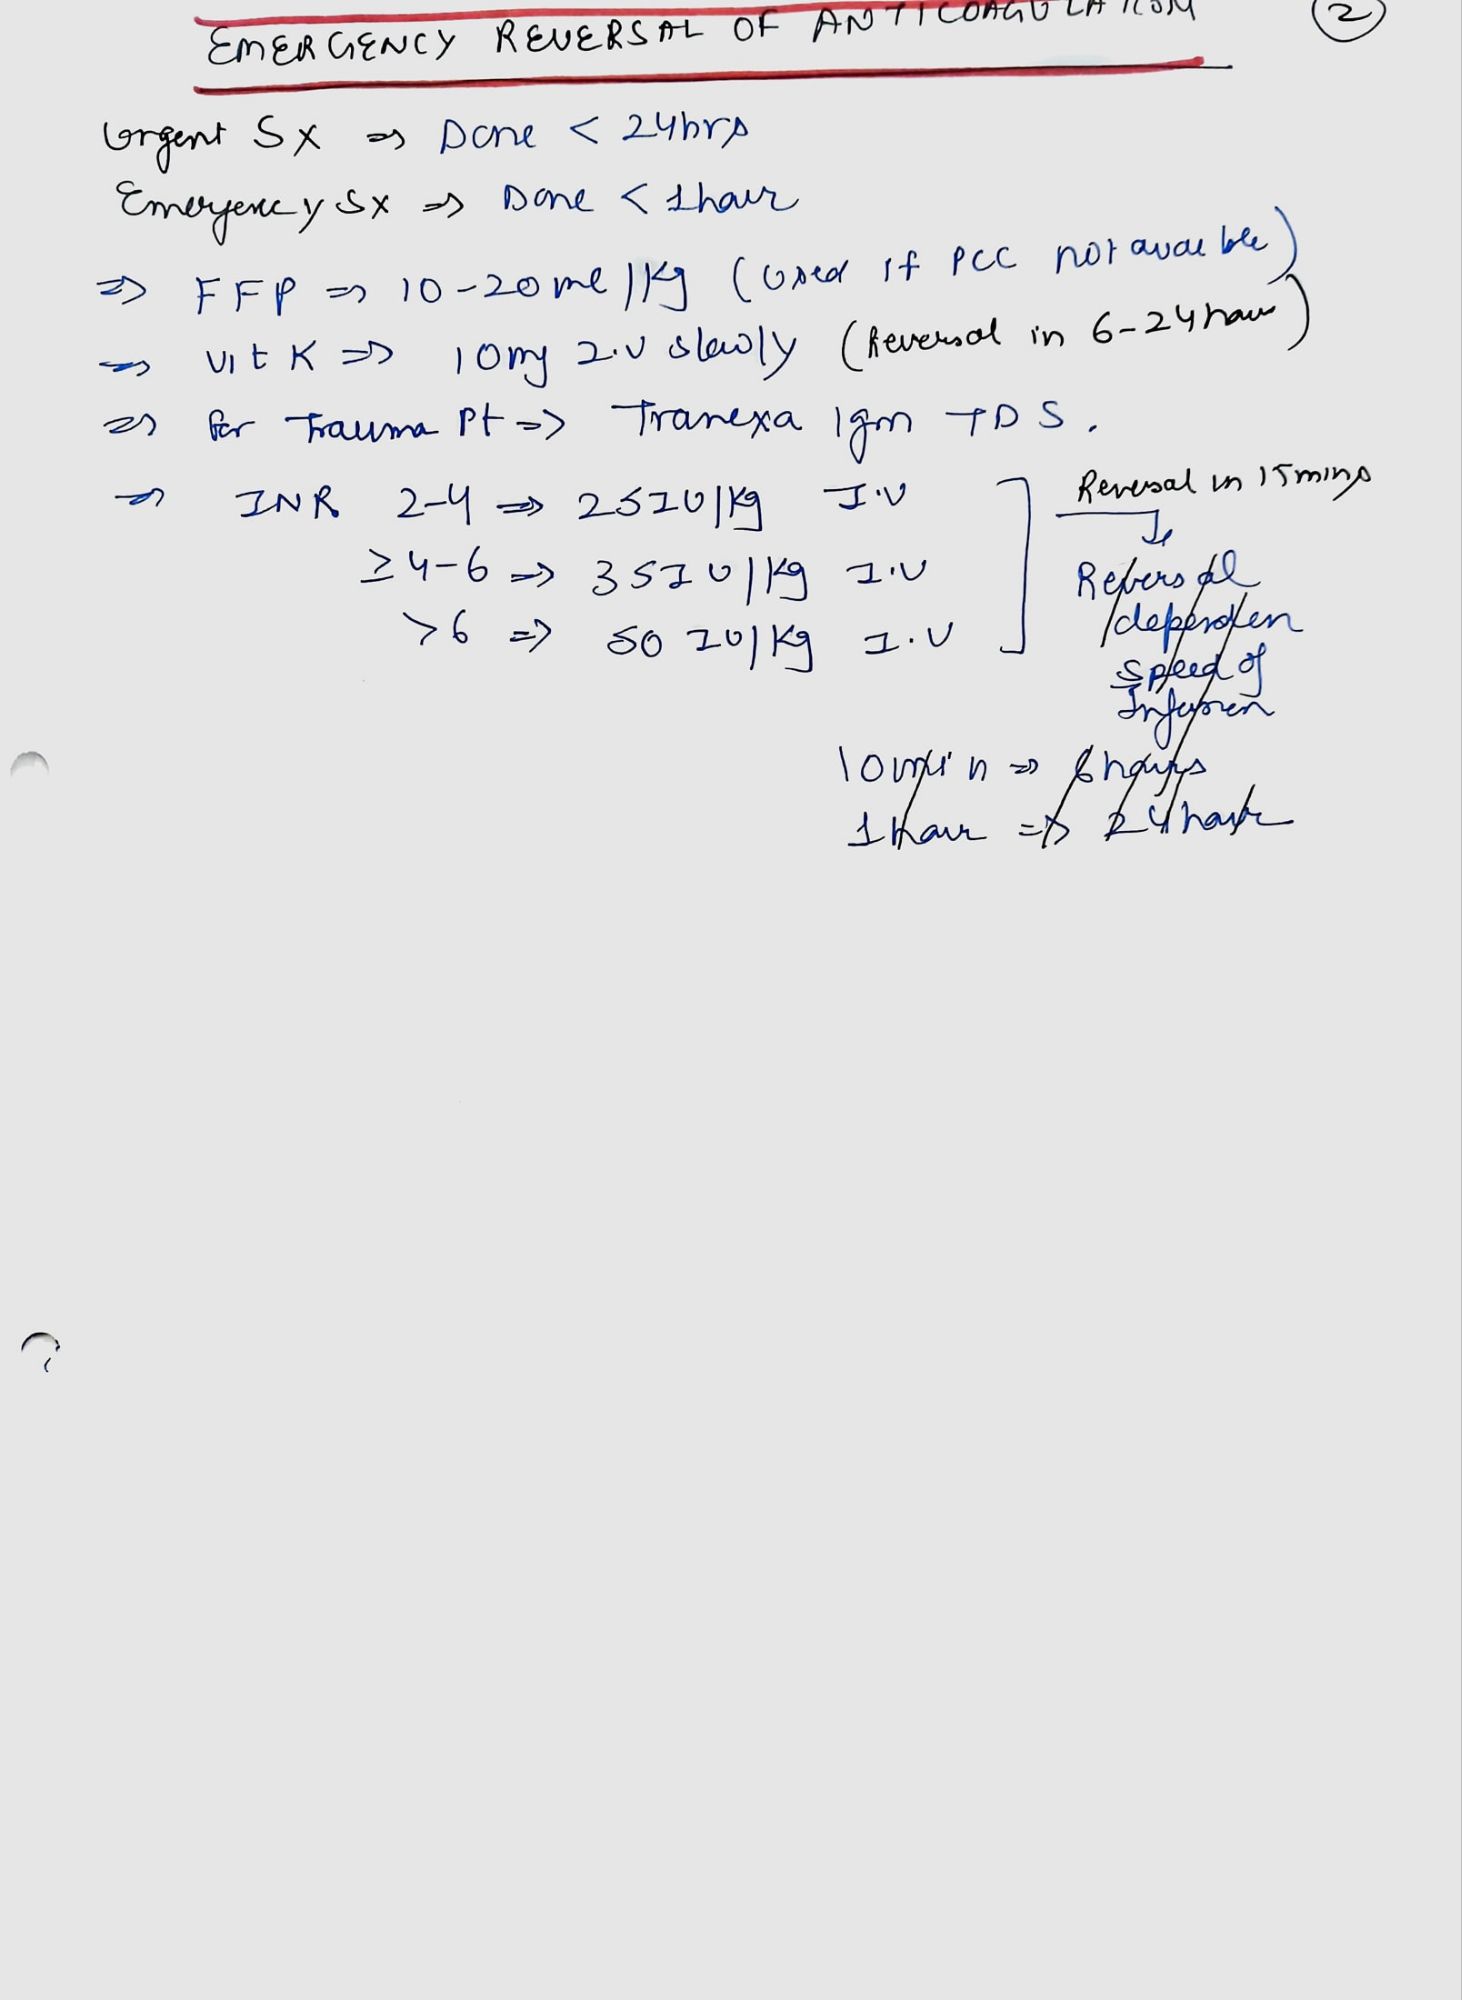 EMERGENCY REVERSAL OF ANTICOAGULATION
2
Urgent Sx ⇒ Done < 24hrs
Emergency Sx ⇒ Done < 1 hour
⇒ FFP ⇒ 10-20 ml/kg (Used if PCC not avai ble)
⇒ Vit K ⇒ 10mg I.V slowly (Reversal in 6-24 hour)
⇒ for Trauma Pt => Tranexa 1gm TDS.
⇒ INR 2-4 ⇒ 25 IU/kg I.V
≥ 4-6 ⇒ 35 IU/kg I.V
>6 ⇒ 50 IU/kg I.V
Reversal in 15 mins
↓
Reversal
dependen
speed of
Infusion
10 min ⇒ 6 hours
1 hour ⇒ 24 hour